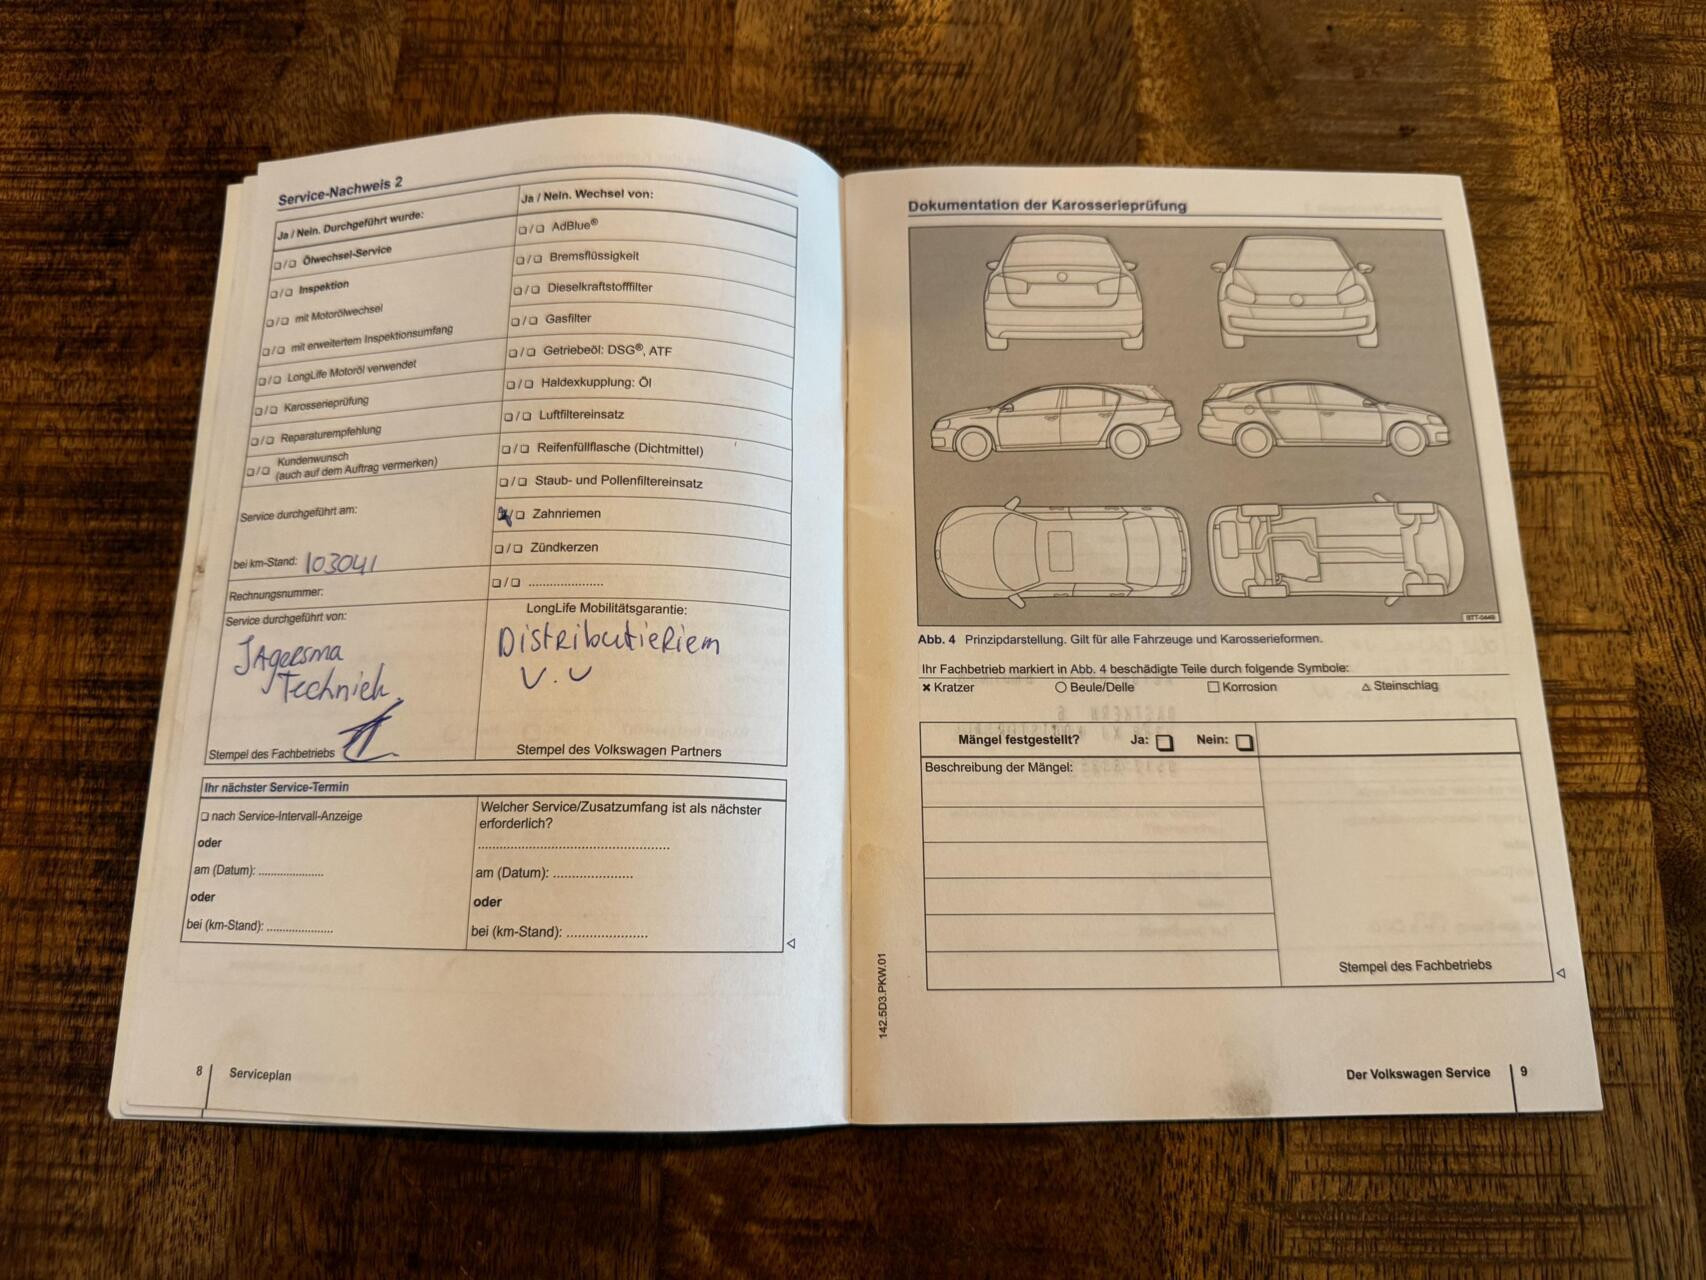 Service-Nachweis 2
Ja / Nein. Durchgeführt wurde:
❑/❑ Ölwechsel-Service
❑/❑ Inspektion
❑/❑ mit Motorölwechsel
❑/❑ mit erweitertem Inspektionsumfang
❑/❑ LongLife Motoröl verwendet
❑/❑ Karosserieprüfung
❑/❑ Reparaturempfehlung
❑/❑ Kundenwunsch
(auch auf dem Auftrag vermerken)
Service durchgeführt am:
bei km-Stand: 103041
Rechnungsnummer:
Service durchgeführt von:
Jagersma
Techniek
Stempel des Fachbetriebs
Ja / Nein. Wechsel von:
❑/❑ AdBlue®
❑/❑ Bremsflüssigkeit
❑/❑ Dieselkraftstofffilter
❑/❑ Gasfilter
❑/❑ Getriebeöl: DSG®, ATF
❑/❑ Haldexkupplung: Öl
❑/❑ Luftfiltereinsatz
❑/❑ Reifenfüllflasche (Dichtmittel)
❑/❑ Staub- und Pollenfiltereinsatz
x/❑ Zahnriemen
❑/❑ Zündkerzen
❑/❑ ....................
LongLife Mobilitätsgarantie:
Distributieriem
V.V
Stempel des Volkswagen Partners
Ihr nächster Service-Termin
❑ nach Service-Intervall-Anzeige
oder
am (Datum): ....................
oder
bei (km-Stand): ....................
Welcher Service/Zusatzumfang ist als nächster
erforderlich?
............................................................
am (Datum): .........................
oder
bei (km-Stand): .........................
8 Serviceplan
Dokumentation der Karosserieprüfung
BTT-0449
Abb. 4 Prinzipdarstellung. Gilt für alle Fahrzeuge und Karosserieformen.
Ihr Fachbetrieb markiert in Abb. 4 beschädigte Teile durch folgende Symbole:
× Kratzer ○ Beule/Delle □ Korrosion △ Steinschlag
Mängel festgestellt? Ja: ❑ Nein: ❑
Beschreibung der Mängel:
Stempel des Fachbetriebs
142.5D3.PKW.01
Der Volkswagen Service 9